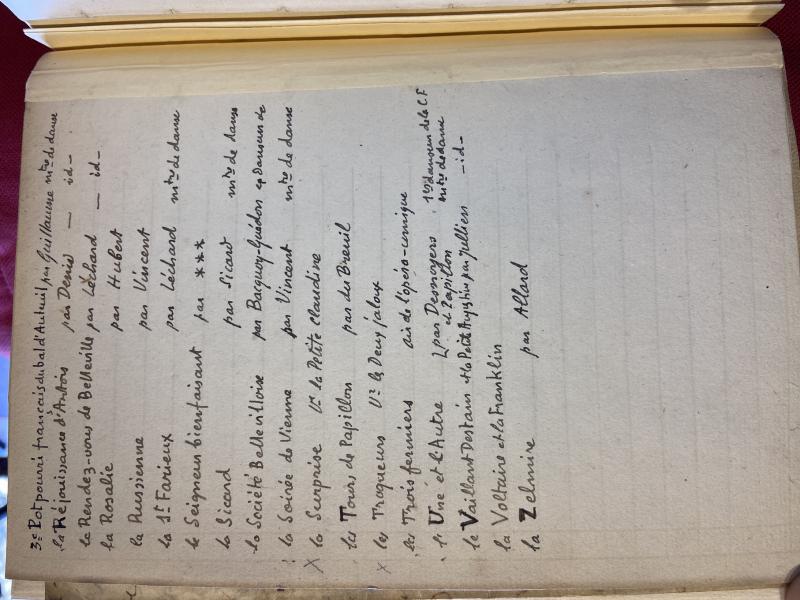 3e Potpourri français du bal d'Auteuil par Guillaume mtre de danse
la Réjouissance d'Antois par Denis — id —
le Rendez-vous de Belleville par Léchard — id —
la Rosalie par Hubert
la Russienne par Vincent
la St Farieux par Léchard mtre de danse
le Seigneur bienfaisant par ***
la Sicard par Sicard mtre de danse
la Société Bellevilloise par Bacquoy-Guédon ep Danseur de
la Soirée de Vienne par Vincent mtre de danse
X la Surprise Vr la Petite Claudine
les Tours de Papillon par du Breuil
X les Traqueurs Vr les Deux jaloux
les Trois fermiers air de l'opéra-comique
l'Une et l'Autre par Desnoyers 1er danseur de la C.F.
et Papillon mtre de danse
le Vaillant Destain et le Petit Augustin par Jullien — id —
la Voltaire et la Franklin
la Zelmire par Allard